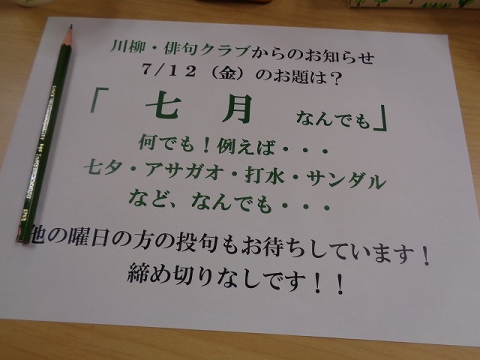 川柳・俳句クラブからのお知らせ
7/12（金）のお題は？
「 七 月 なんでも」
何でも！例えば・・・
七夕・アサガオ・打水・サンダル
など、なんでも・・・
他の曜日の方の投句もお待ちしています！
締め切りなしです！！